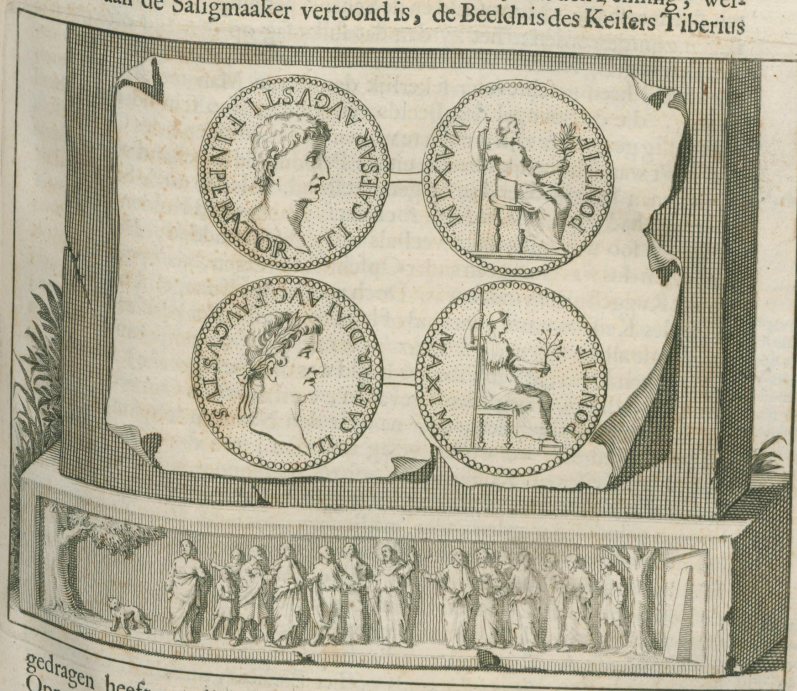 aan de Saligmaaker vertoond is, de Beeldnis des Keisers Tiberius
TI CAESAR AVGVSTI F. INPERATOR.
PONTIF MAXIM
TI CAESAR DIVI AVG F AVGVSTVS
PONTIF MAXIM
gedragen